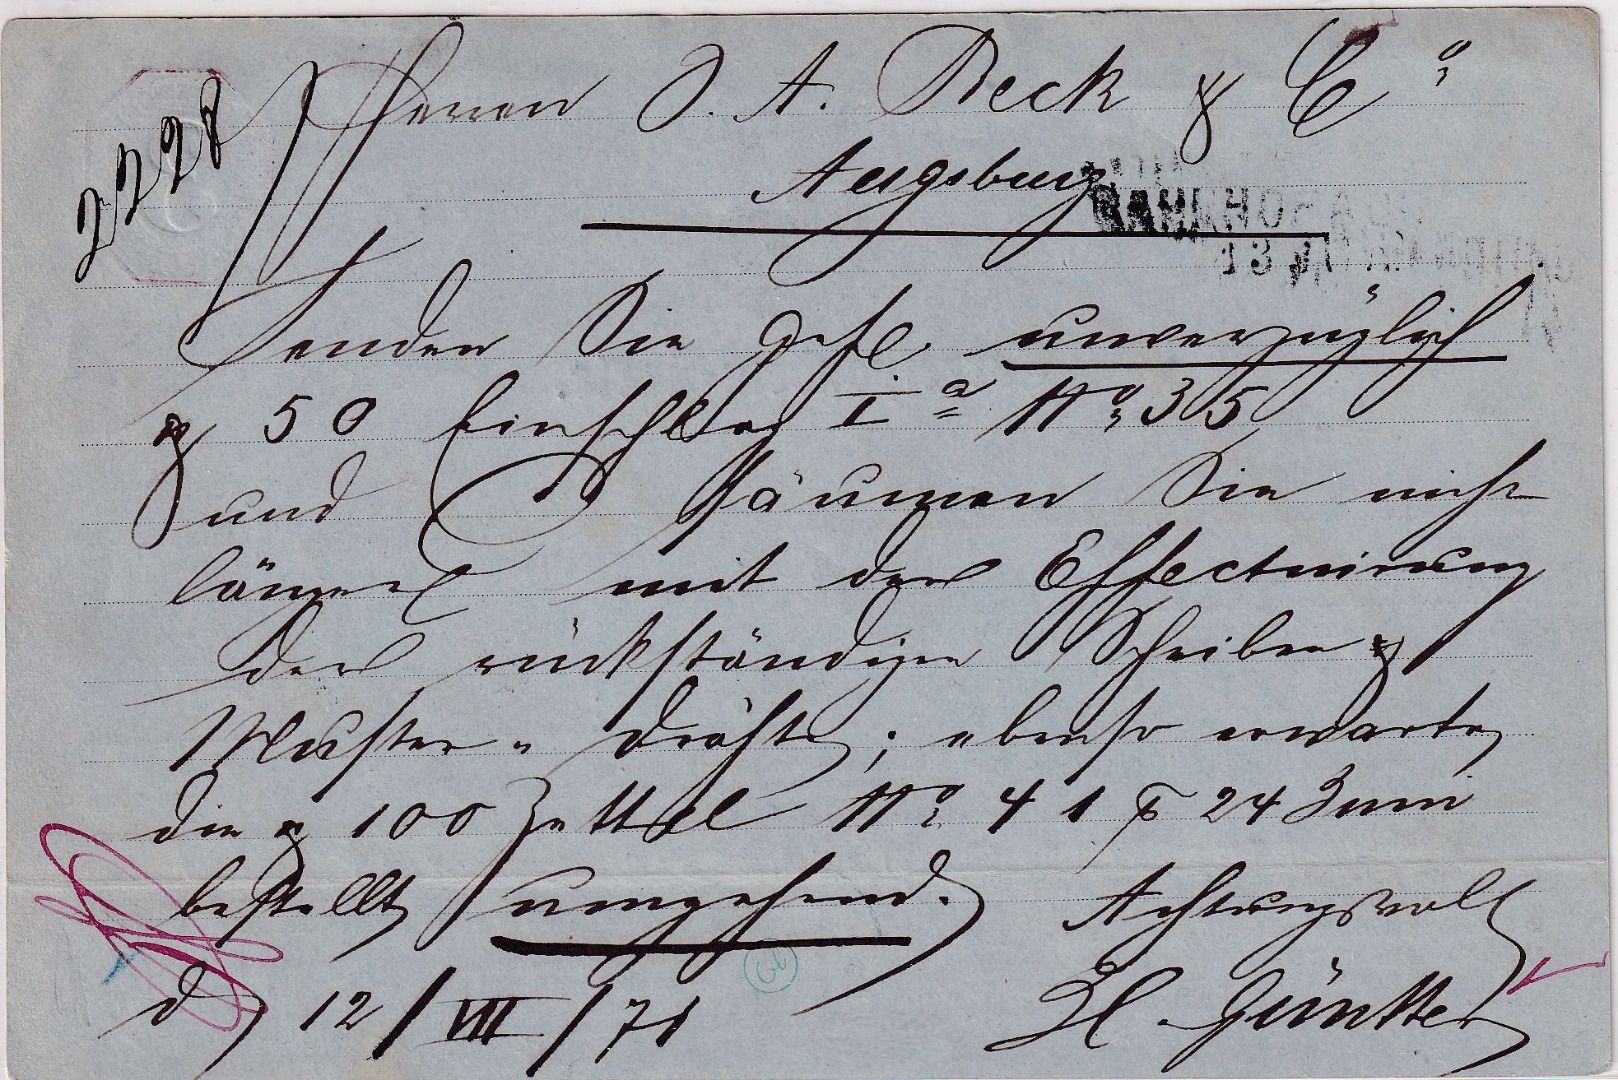 2228
Herren J. A. Beck & Co
Augsburg
BAHNHOF
13
Senden Sie gefl. unverzüglich
50 Einschlag Ia No 35
und säumen Sie nicht
länger mit der Effectuirung
der rückständigen Scheiben
Muster- Drähte; ebenso erwarte
die 100 Zettel No 41 24 Juni
bestellt umgehend. Achtungsvoll
d 12/VIII/71 H. Günther